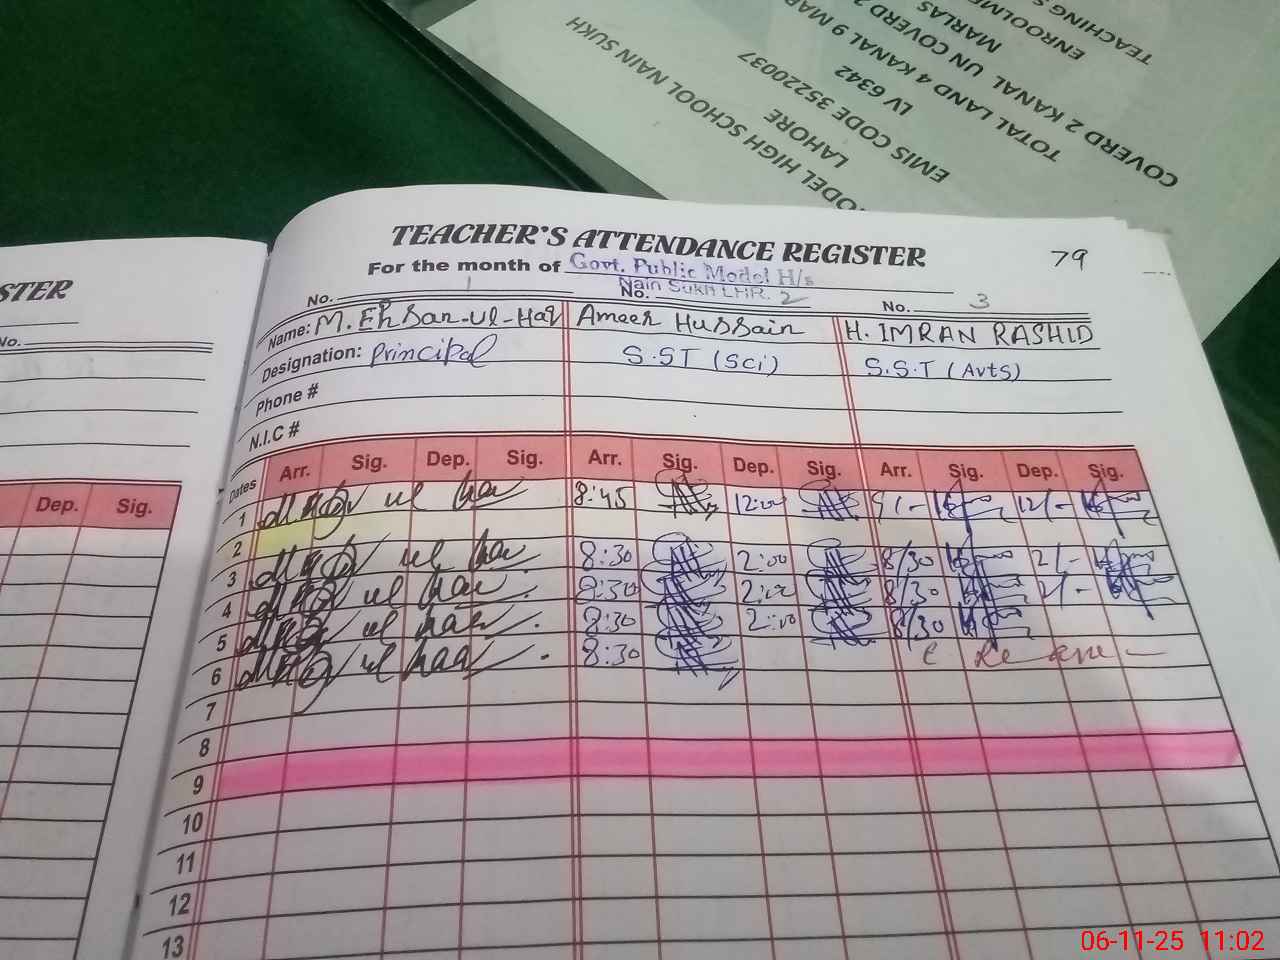 TEACHING S
ENROOLME
MARLAS
UN COVERD 2
COVERD 2 KANAL
TOTAL LAND 4 KANAL 9 MAR
LV 6342
EMIS CODE 35220037
LAHORE
MODEL HIGH SCHOOL NAIN SUKH
STER
No.
Dep. Sig.
TEACHER'S ATTENDANCE REGISTER 79
For the month of Govt. Public Model H/s
Nain Sukh LHR.
No. 1 No. 2 No. 3
Name: M. Ehsan-ul-Haq Ameer Hussain H. IMRAN RASHID
Designation: Principal S.ST (Sci) S.S.T (Arts)
Phone #
N.I.C #
Dates Arr. Sig. Dep. Sig. Arr. Sig. Dep. Sig. Arr. Sig. Dep. Sig.
1 ul haq 8:45 12:00 9/- 12/-
2
3 ul haq 8:30 2:00 8/30 2/-
4 ul haq 8:30 2:00 8/30 2/-
5 ul haq 8:30 2:00 8/30
6 ul haq 8:30
7
8
9
10
11
12
13
06-11-25 11:02